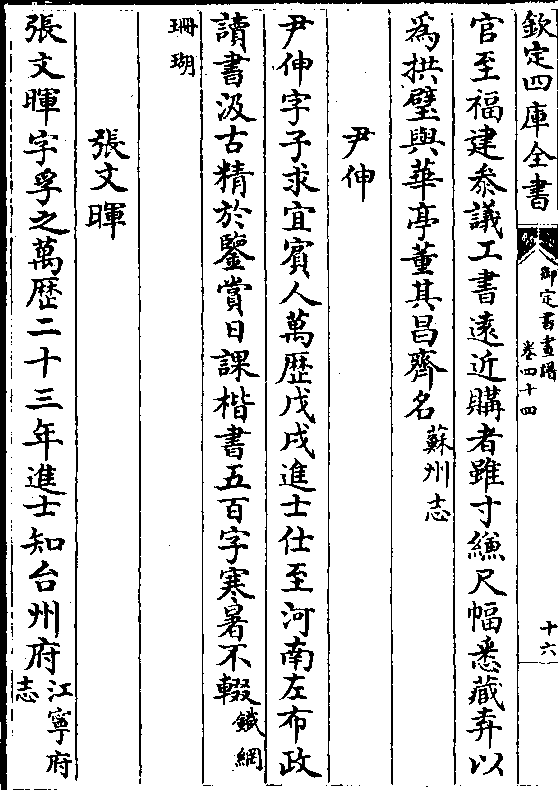 欽定四庫全書
御定書畫譜
卷四十四
十六
官至福建叅議工書遠近購者雖寸縑尺幅悉藏弆以
為拱璧與華亭董其昌齊名蘇州志
尹伸
尹伸字子求宜賓人萬歴戊戌進士仕至河南左布政
讀書汲古精於鑒賞日課楷書五百字寒暑不輟鐵網
珊瑚
張文暉
張文暉字孚之萬歴二十三年進士知台州府江寧府志